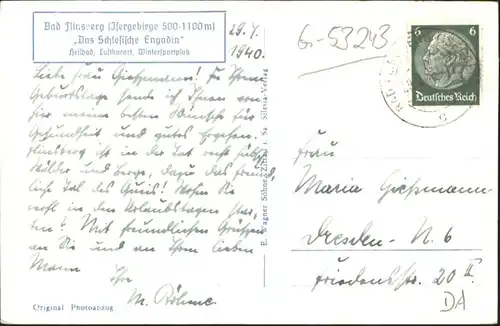 Bad Flinsberg (Isergebirge 500-1100m)
"Das Schlesische Engadin"
Heilbad, Luftkurort, Wintersportplatz
29.7.
1940.
Liebe Frau Gießmann! Zu Ihrem
Geburtstage sende ich Ihnen von
hier meine besten Wünsche für
Gesundheit und gutes Ergehen.
Flinsberg ist in der Tat recht hübsch
Wälder und Berge, dazu das freund
liche Tal des Queis! Wohin Sie
wohl in den Urlaubstagen
ten? Mit freundlichen Grüßen
an Sie und an Ihren lieben
Mann Ihre
M. Böhme.
Original Photoabzug
E. Wagner Söhne, Zittau Sa.
Gr-53243
6 6
Deutsches Reich
Frau
Maria Gießmann
Dresden-N. 6
Friedensstr. 20 II
DA